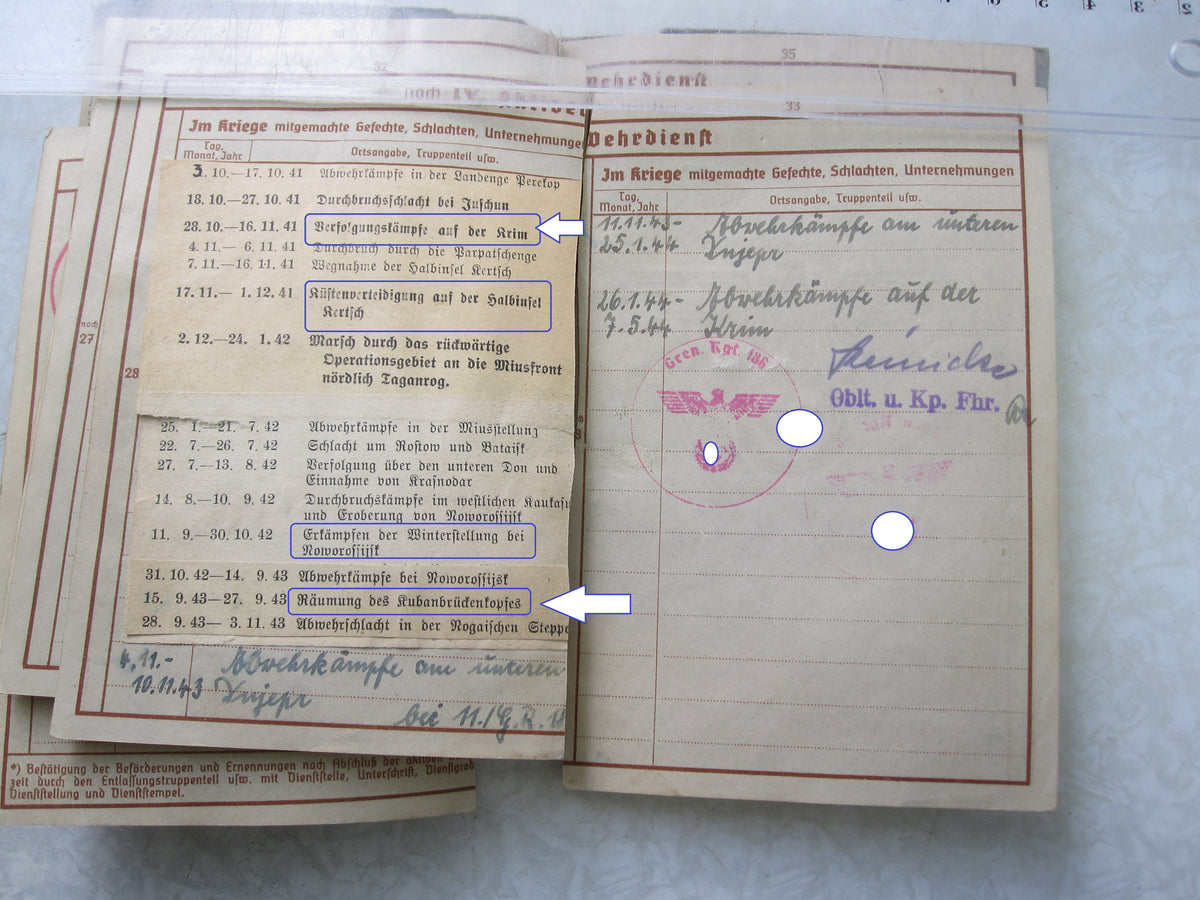 30
32
noch IV. Aktiver
Im Kriege mitgemachte Gefechte, Schlachten, Unternehmungen
Tag, Monat, Jahr
Ortsangabe, Truppenteil usw.
3. 10.—17. 10. 41 Abwehrkämpfe in der Landenge Perekop
18. 10.—27. 10. 41 Durchbruchsschlacht bei Juschun
28. 10.—16. 11. 41 Verfolgungskämpfe auf der Krim
4. 11.— 6. 11. 41 Durchbruch durch die Parpatschenge
7. 11.—16. 11. 41 Wegnahme der Halbinsel Kertsch
17. 11.— 1. 12. 41 Küstenverteidigung auf der Halbinsel
Kertsch
2. 12.—24. 1. 42 Marsch durch das rückwärtige
Operationsgebiet an die Miusfront
nördlich Taganrog.
25. 1.—21. 7. 42 Abwehrkämpfe in der Miusstellung
22. 7.—26. 7. 42 Schlacht um Rostow und Bataisk
27. 7.—13. 8. 42 Verfolgung über den unteren Don und
Einnahme von Krasnodar
14. 8.—10. 9. 42 Durchbruchskämpfe im westlichen Kaukasu
und Eroberung von Noworossijsk
11. 9.—30. 10. 42 Erkämpfen der Winterstellung bei
Noworossijsk
31. 10. 42—14. 9. 43 Abwehrkämpfe bei Noworossijsk
15. 9. 43—27. 9. 43 Räumung des Kubanbrückenkopfes
28. 9. 43— 3. 11. 43 Abwehrschlacht in der Nogaischen Steppe
4.11.- Abwehrkämpfe am unteren
10.11.43 Dnjepr
bei 11./G.R.
noch
27
28
*) Bestätigung der Beförderungen und Ernennungen nach Abschluß der aktiven
zeit durch den Entlassungstruppenteil usw. mit Dienststelle, Unterschrift, Dienstgrad
Dienststellung und Dienststempel.
35
Wehrdienst
33
Wehrdienst
Im Kriege mitgemachte Gefechte, Schlachten, Unternehmungen
Tag, Monat, Jahr
Ortsangabe, Truppenteil usw.
11.11.43- Abwehrkämpfe am unteren
25.1.44 Dnjepr
26.1.44- Abwehrkämpfe auf der
7.5.44 Krim
Gren. Kgt. 186
Oblt. u. Kp. Fhr.